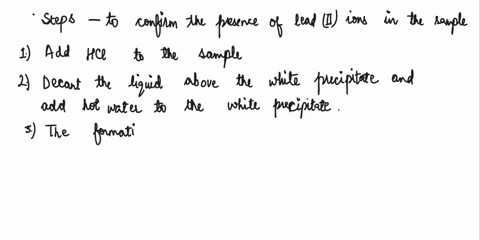 · Steps — to confirm the presence of lead (II) ions in the sample
1) Add HCl to the sample
2) Decant the liquid above the white precipitate and
add hot water to the white precipitate.
3) The formati